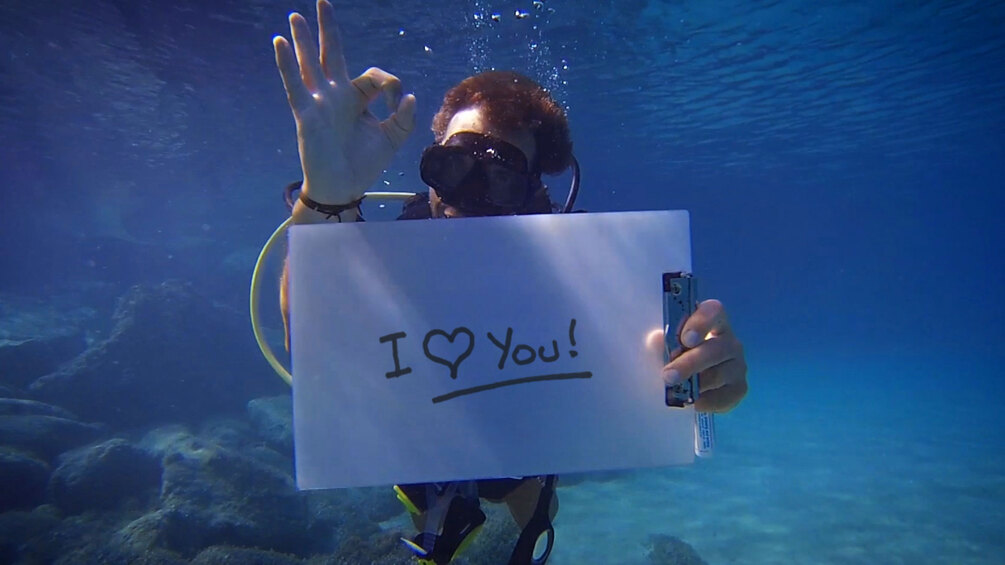 I ♡ You!